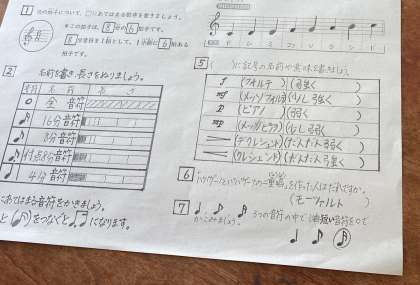 1 次の拍子について、□にあてはまる数字を書きましょう。
★この拍子は、8分の6拍子です。
8分音符を1拍として、1小節に6拍ある
拍子です。
2 名前を書き、長さをぬりましょう。
音符 名前 長さ
全音符
16分音符
8分音符
付点8分音符
4分音符
にあてはまる音符をかきましょう。
と をつなぐと になります。
ド レ ミ ファ ソ ラ シ ド
5 ( )に記号の名前や意味を書きましょう。
f (フォルテ)(強く)
mf (メッゾフォルテ)(少し強く)
p (ピアノ)(弱く)
mp (メッゾピアノ)(少し弱く)
(デクレシェンド)(だんだん弱く)
(クレシェンド)(だんだん強く)
6 「パパゲーノとパパゲーナの二重唱」を作った人はだれですか。
(モーツァルト)
7 3つの音符の中で1番短い音符を○で
かこみましょう。